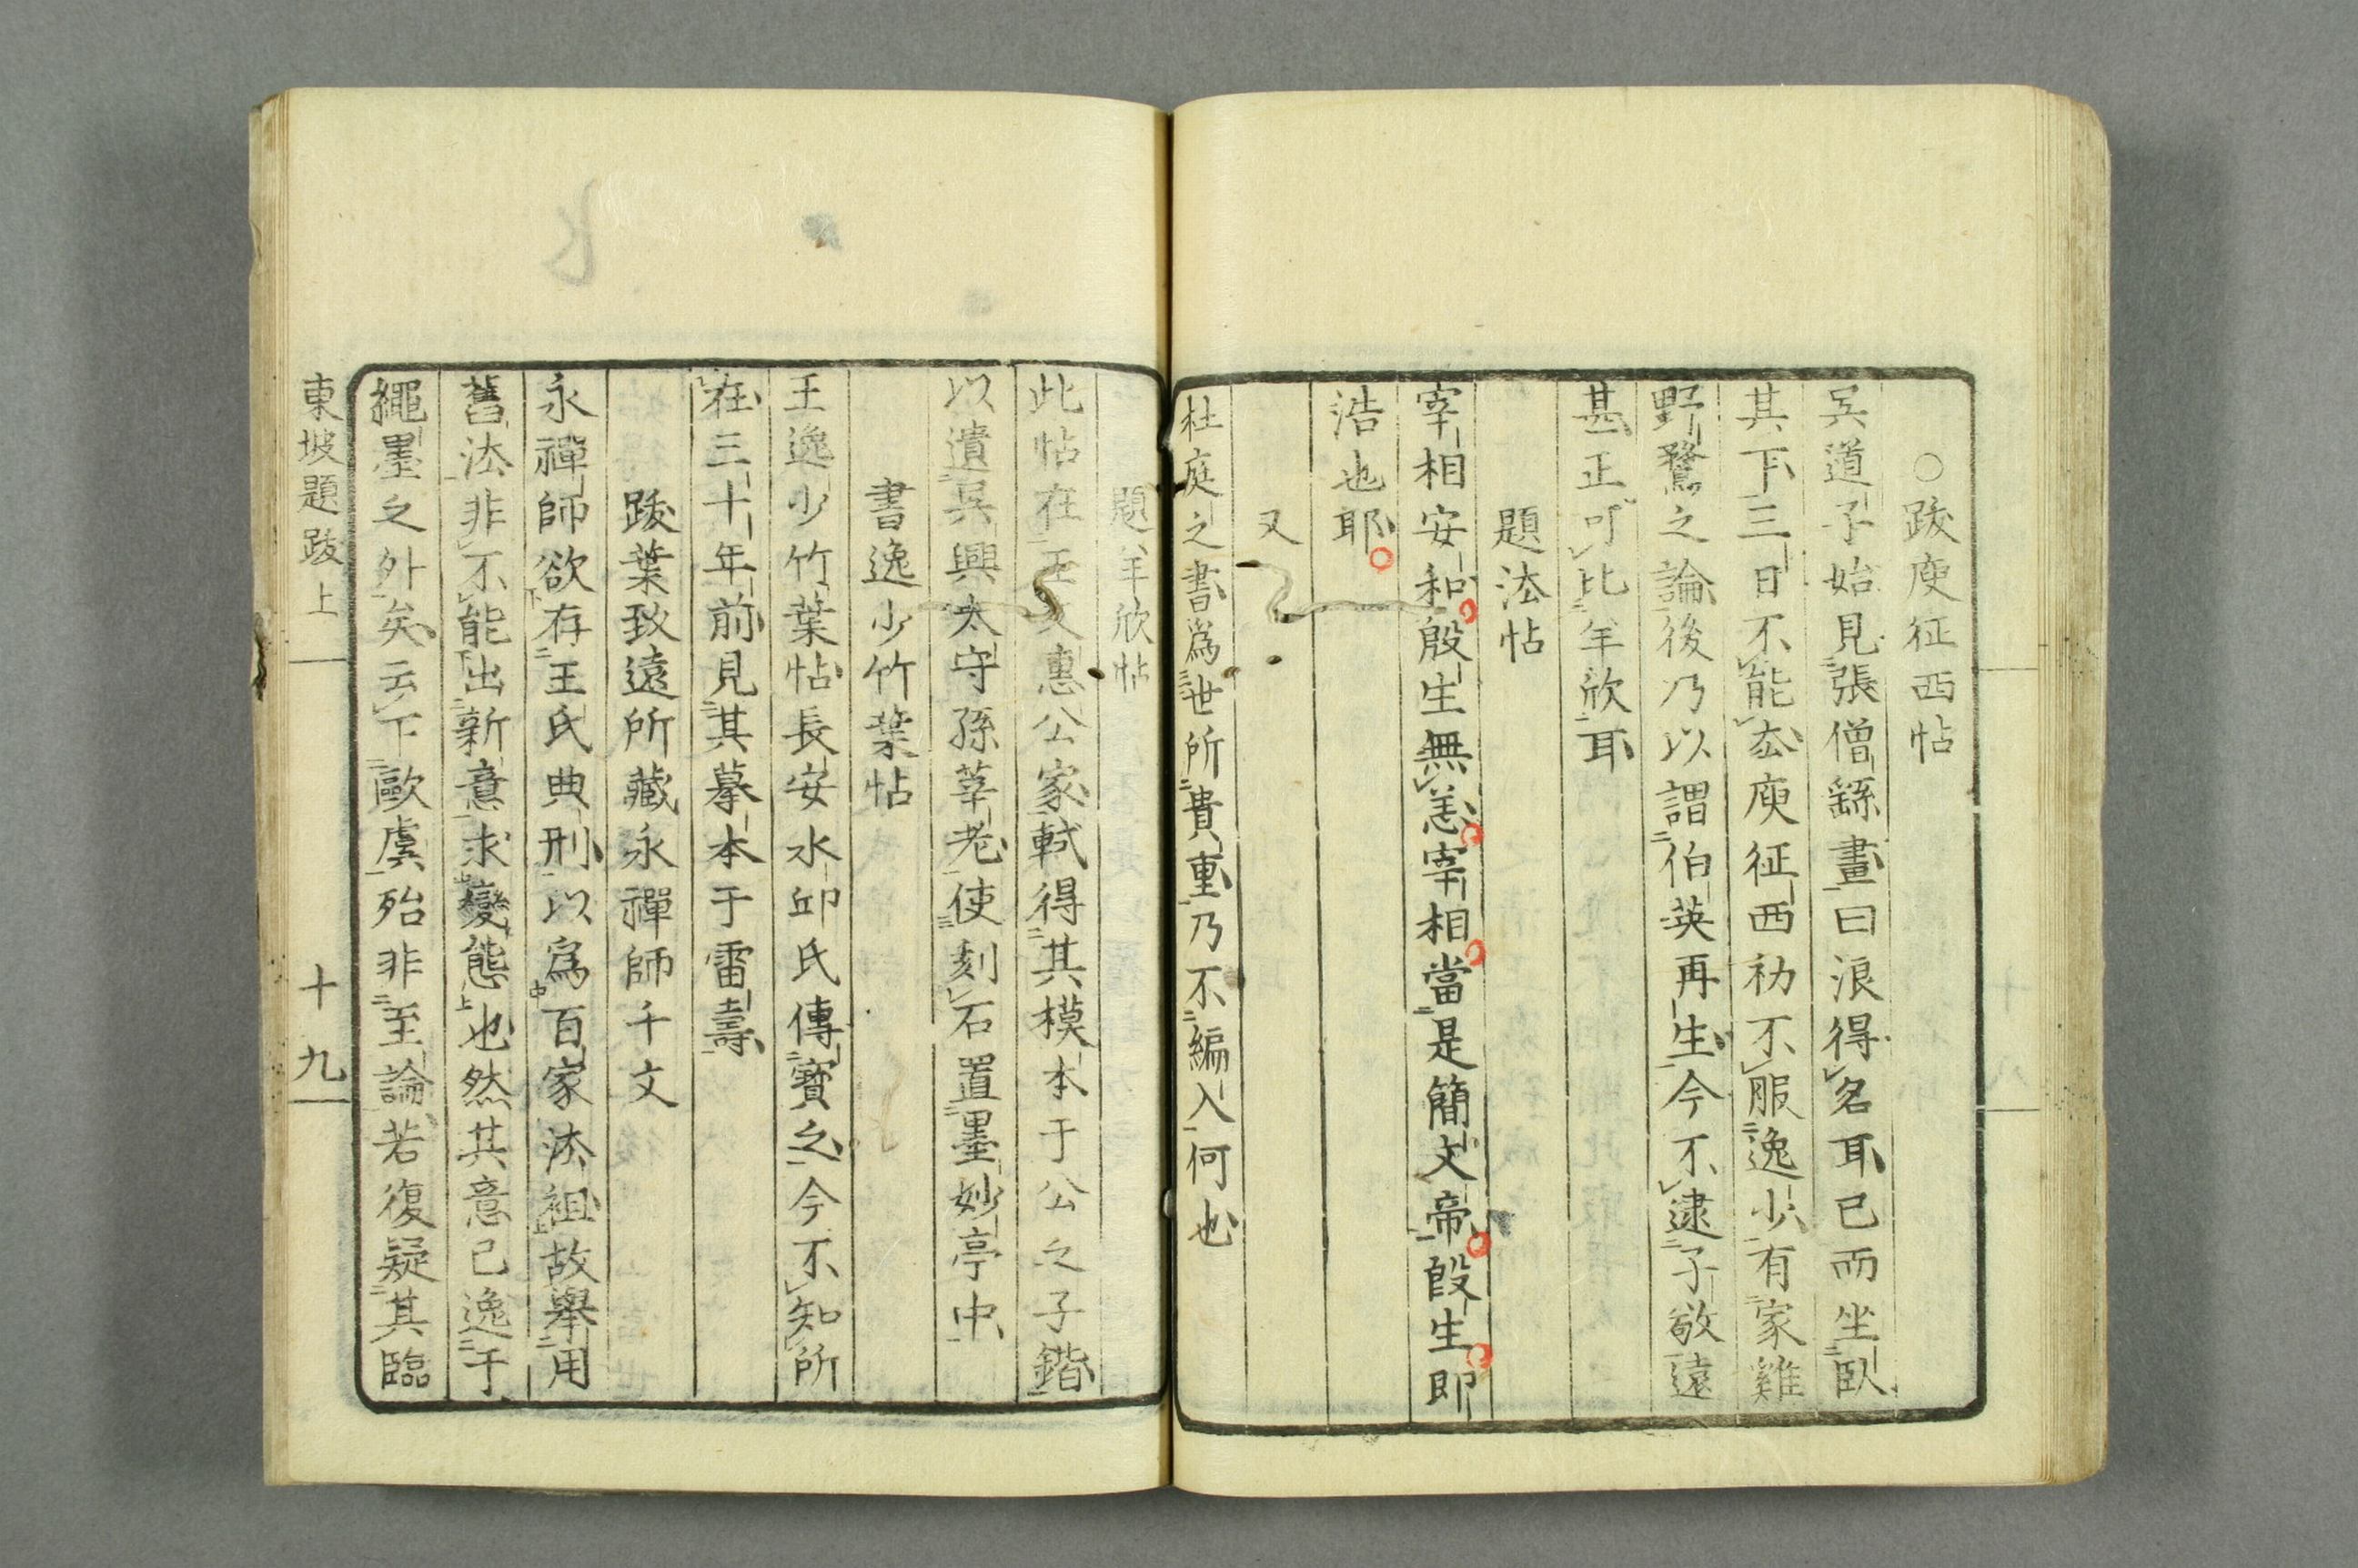 ○跋庾征西帖
吳道子始見張僧繇畫曰浪得名耳已而坐臥
其下三日不能去庾征西初不服逸少有家雞
野鶩之論後乃以謂伯英再生今不逮子敬遠
甚正可比羊欣耳
題法帖
宰相安和殷生無恙宰相當是簡文帝殷生即
浩也耶
又
杜庭之書爲世所貴重乃不編入何也
題羊欣帖
此帖在王文惠公家軾得其模本于公之子鍇
以遺吳興太守孫莘老使刻石置墨妙亭中
書逸少竹葉帖
王逸少竹葉帖長安水邱氏傳寶之今不知所
在三十年前見其摹本于雷壽
跋葉致遠所藏永禪師千文
永禪師欲存王氏典刑以爲百家法祖故舉用
舊法非不能出新意求變態也然其意已逸于
繩墨之外矣云下歐虞殆非至論若復疑其臨
東坡題跋上
十九